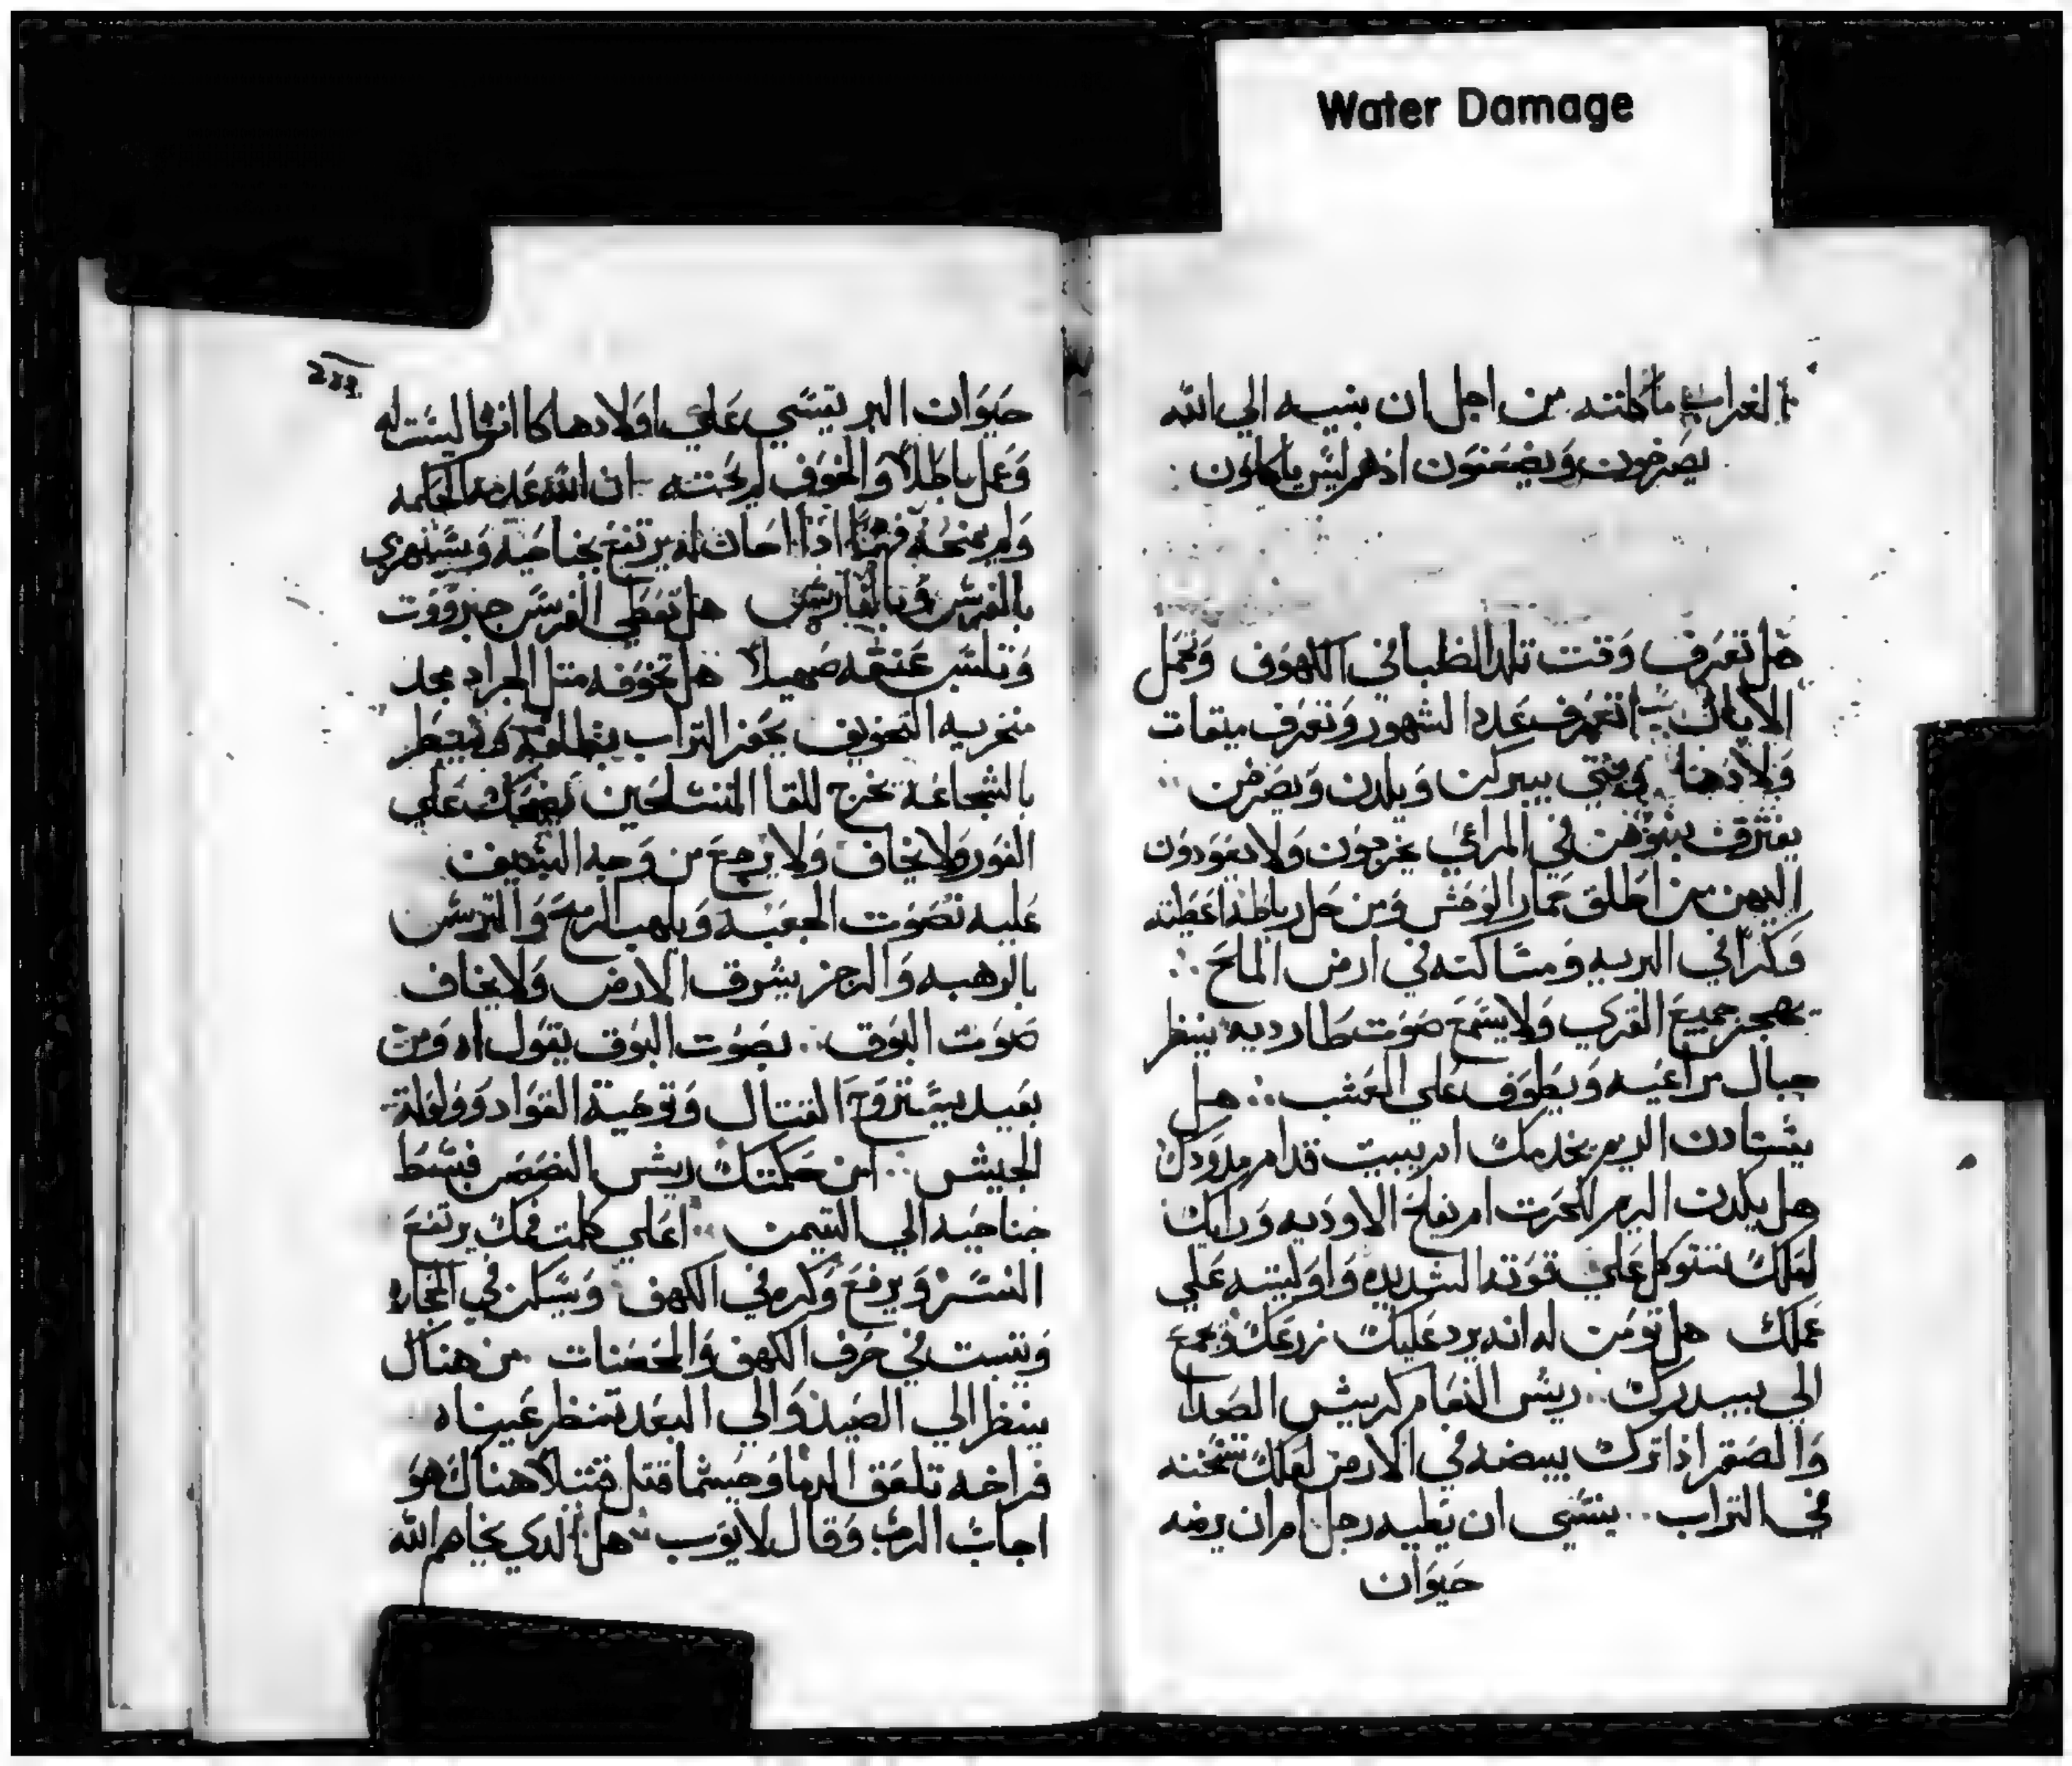 Water Damage
الغراب ماكلته من اجل ان بنيه الي الله
يصرخون ويضعنون اذهم ليس ياكلون
هل تعرف وقت تلد الظبا في الكهوف وتحمل
الايال اتعرف عدد الشهور وتعرف ميقات
ولادهنا يبركن ويلدن ويصرخن
يفترق بنوهن في المراعي يخرجون ولا يعودون
اليهن من اطلق حمار الوحش ومن حل رباطه اعطيته
وكرا في البريه ومساكنه في ارض المالح
يهجر جميع القري ولا يسمع صوت طارديه ينظر
جبال مراعيه ويطوف علي العشب هل
يستادن الريم يخدمك ام يبيت قدام مدودك
هل يكدن الريم للحرت ام يفلح الاوديه وراك
لعلك تتوكل علي قوته الشديده واوليته علي
عملك هل تومن له انه يرد عليك زرعك وتجمع
الي بيدرك ريش النعام كريش الصدا
والصقر اذا ترك بيضه في الارض لعلك تسخنه
في التراب ينسي ان يطيه رجل ام ان يرضه
حيوان
حيوان البر تقسي علي اولادها كا انها ليست له
وعمل باطلا والخوف لم يحته ان الله عدمه الحكمه
ولم يمنحه فهما اذا احان له يرتفع بجناحيه ويستهزي
بالفرس وبالفارس هل تعطي الفرس جبرووت
وتلبس عنقه صهيلا هل تخوفه متل الجراد مجد
منخريه التخويف يحفر التراب
بالشجاعه يخرج للقا المتسلحين يضحك علي
الفور ولا يخاف ولا يرجع من وجه السيف
عليه تصوت الجعبه ويلهب الرمح والترس
بالرهبه والرجز يشرق الارض ولا يخاف
صوت البوق بصوت البوق يقول اه ومن
بعيد يستروح القتال وتوحية القواد وولولة
الجيش امن حكمتك ريش النصر فبسط
جناحيه الي التيمن اعلي كلمت فمك يرتفع
النسر ويرفع وكره في الكهف ويسكن في
ويتبت في حرف الكهف والحصنات من هناك
ينظر الي الصيد والي البعد تنظر عيناه
فراخه تلعق الدما وحيثما قتل قتلا هناك هو
اجاب الرب وقال لايوب هل الدي يخاصم الله